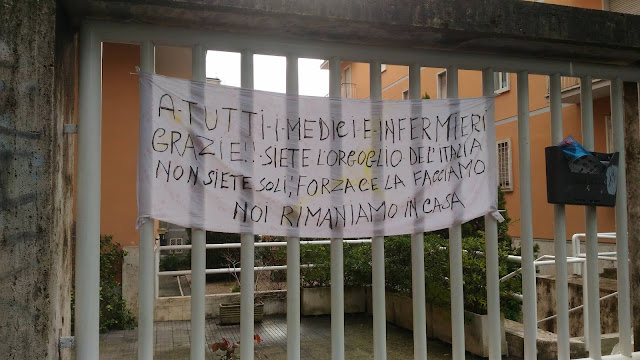 A·TUTTI·I·MEDICI·E·INFERMIERI
GRAZIE!·SIETE L'ORGOGLIO DEL'ITALIA
NON SIETE SOLI, FORZA CE LA FACCIAMO
NOI RIMANIAMO IN CASA